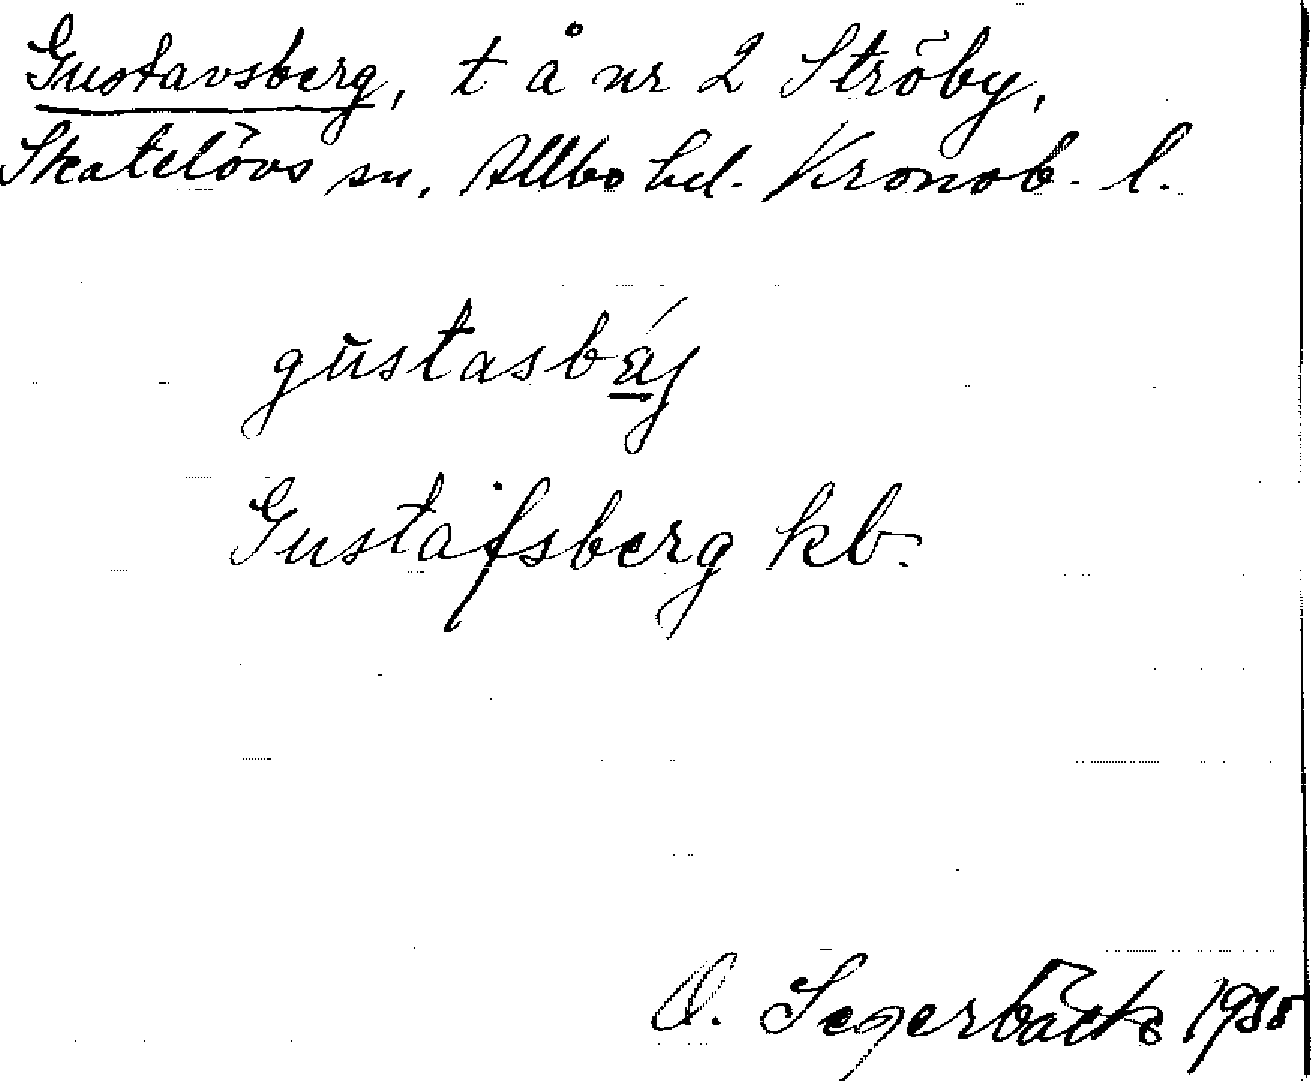 Gustavsberg, t å nr 2 Ströby,
Skatelövs sn, Allbo hd. Kronob. l.
gustasbäj
Gustafsberg kb.
O. Segerbäck